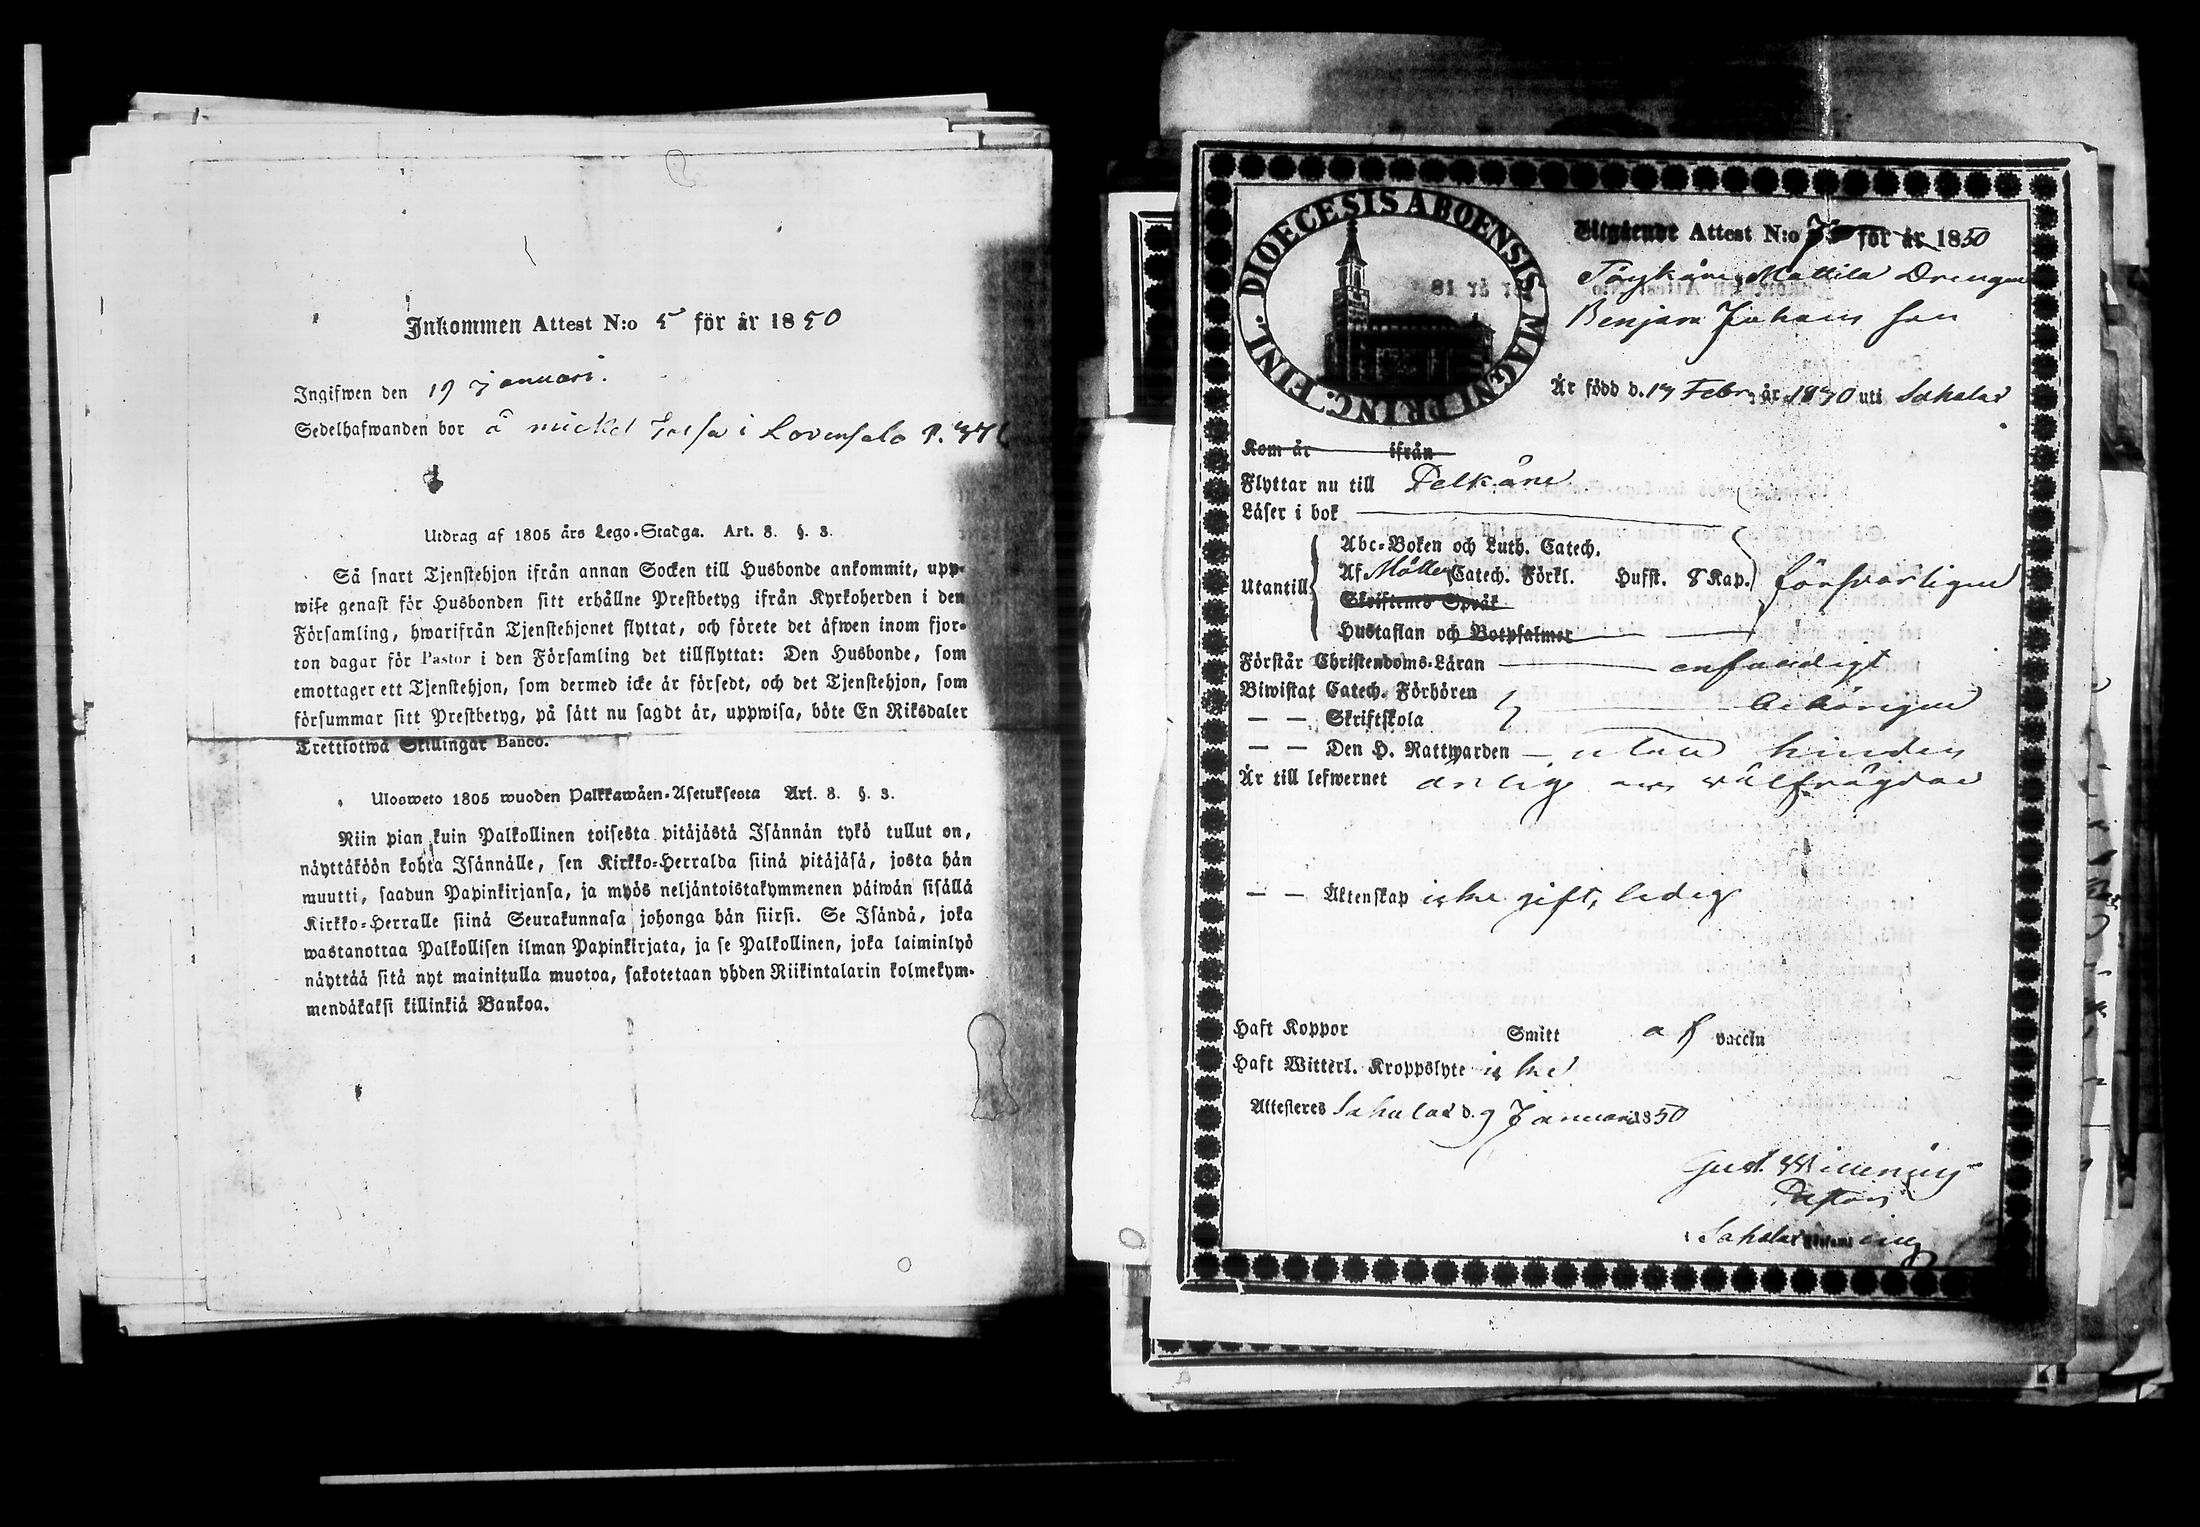 Inkommen Attest N:o 5 för år 1850
Ingifwen den 19 januari.
Sedelhafwanden bor å mickel i
Utdrag af 1805 års Lego-Stadga. Art. 8. §. 3.
Så snart Tjenstehjon ifrån annan Socken till Husbonde ankommit, upp-
wise genast för Husbonden sitt erhållne Prestbetyg ifrån Kyrkoherden i den
Församling, hwarifrån Tjenstehjonet flyttat, och förete det äfwen inom fjor-
ton dagar för Pastor i den Församling det tillflyttat: Den Husbonde, som
emottager ett Tjenstehjon, som dermed icke är försedt, och det Tjenstehjon, som
försummar sitt Prestbetyg, på sätt nu sagdt är, uppwisa, böte En Riksdaler
Trettiotwå Skillingar Banco.
Ulosweto 1805 wuoden Palkkawäen-Asetuksesta Art. 8. §. 3.
Niin pian kuin Palkollinen toisesta pitäjästä Isännän tykö tullut on,
näyttäköön kohta Isännälle, sen Kirkko-Herralda siinä pitäjäsä, josta hän
muutti, saadun Papinkirjansa, ja myös neljäntoistakymmenen päiwän sisällä
Kirkko-Herralle siinä Seurakunnasa johonga hän siirsi. Se Isändä, joka
wastanottaa Palkollisen ilman Papinkirjata, ja se Palkollinen, joka laiminlyö
näyttää sitä nyt mainitulla muotoa, sakotetaan yhden Riikintalarin kolmekym-
mendäkaksi killinkiä Bankoa.
DIOECESIS ABOENSIS MAGNI PRINC. FINL.
Utgående Attest N:o för år 1850
Mattila Drengen
Benjam Johans son
År född d. 17 Febr. år 1830 uti Sahalax
Kom år ifrån
Flyttar nu till Pelkäne
Läser i bok
Utantill
Abc-Boken och Luth. Catech.
Af Möllers Catech. Förkl. Husst. 8 Kap. försvarligen
Skriftenes Språk
Hustaflan och Botpsalmer
Förstår Christendoms-Läran enfaldigt
Biwistat Catech. Förhören behörigen
— — Skriftskola
— — Den H. Nattwarden — utan hinder
Är till lefwernet ärlig och välfrägdad
— — Äktenskap icke gift, ledig
Haft Koppor Smitt af vaccin
Haft Witterl. Kroppslyte icke
Attesteres Sahalax d. 9 Januari 1850
Gust.
Pastor
i Sahalax Församling